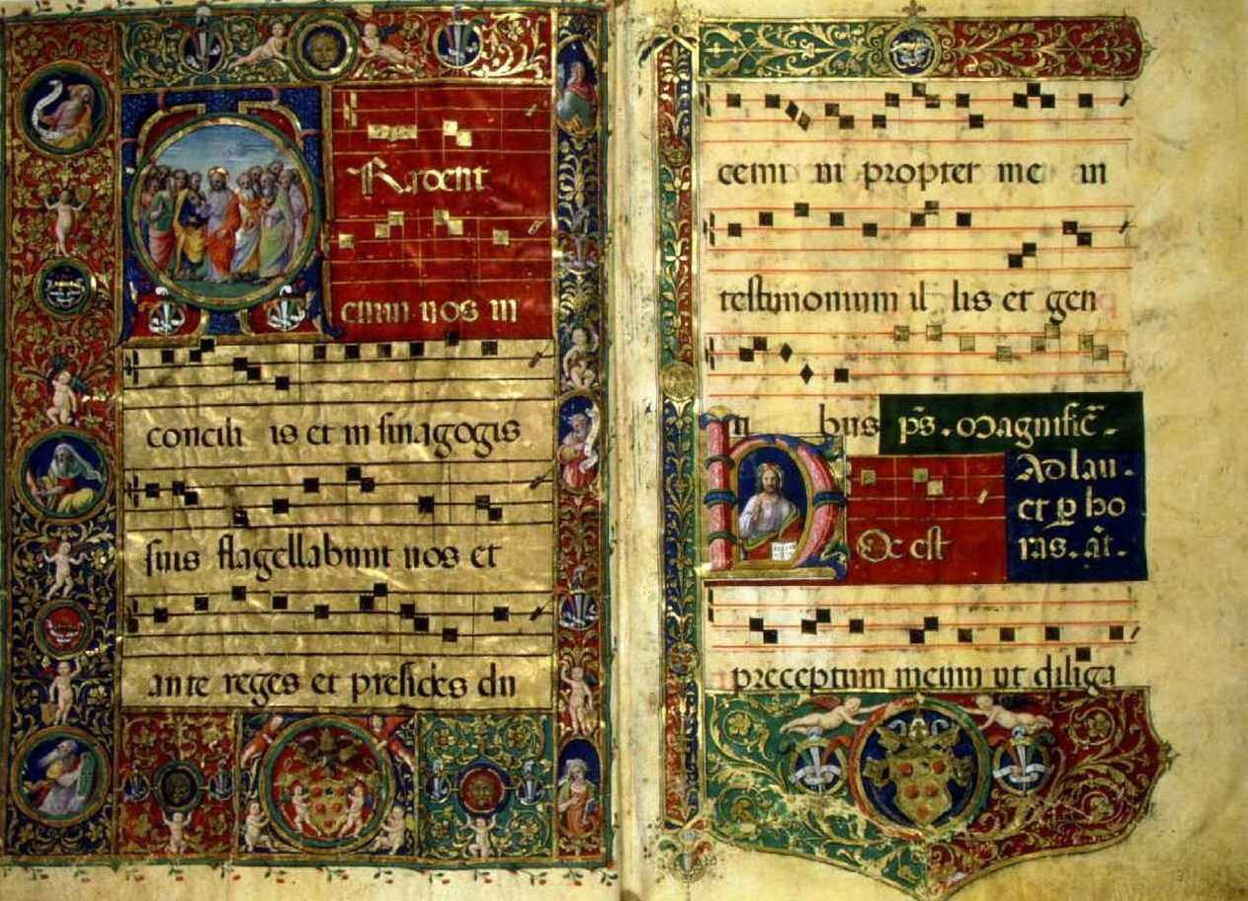 Tradent
enim uos in
concili is et in sinagogis
suis flagellabunt uos et
ante reges et presides du
cemi ni propter me in
testimonium il lis et gen
ti bus p̄s. Magnific̄.
Ad lau.
et p̱ ho
ras. a͞t.
Hoc est
preceptum meum ut diliga